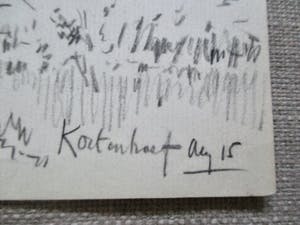 Kortenhoef Aug 15